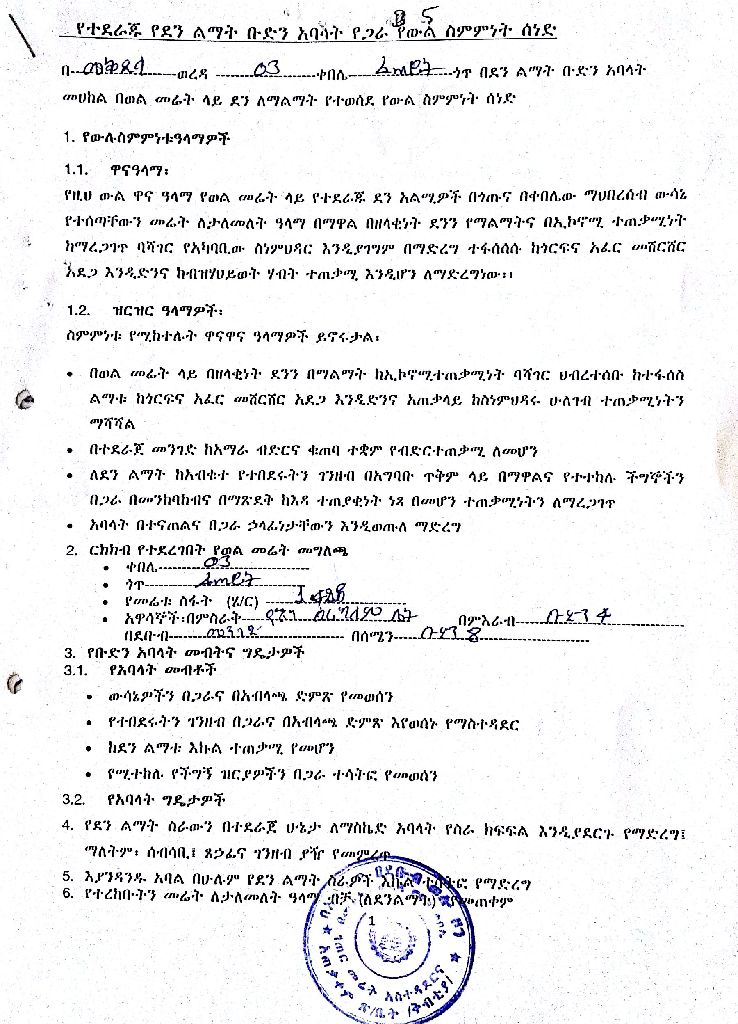 5
የተደራጁ የደን ልማት ቡድን አባላት የጋራ የውል ስምምነት ሰነድ
በ ወረዳ 03 ቀበሌ ጎጥ በደን ልማት ቡድን አባላት
መሀከል በወል መሬት ላይ ደን ለማልማት የተወሰደ የውል ስምምነት ሰነድ
1. የውሉስምምነቱዓላማዎች
1.1. ዋናዓላማ፡
የዚህ ውል ዋና ዓላማ የወል መሬት ላይ የተደራጁ ደን አልሚዎች በጎጡና በቀበሌው ማህበረሰብ ውሳኔ
የተሰጣቸውን መሬት ለታለመለት ዓላማ በማዋል በዘላቂነት ደንን የማልማትና በኢኮኖሚ ተጠቃሚነት
ከማረጋገጥ ባሻገር የአካባቢው ስነምህዳር እንዲያገግም በማድረግ ተፋሰሰሱ ከጎርፍና አፈር መሸርሸር
አደጋ እንዲድንና ከብዝሃህይወት ሃብት ተጠቃሚ እንዲሆን ለማድረግነው፡፡
1.2. ዝርዝር ዓላማዎች፡
ስምምነቱ የሚከተሉት ዋናዋና ዓላማዎች ይኖሩታል፡
• በወል መሬት ላይ በዘላቂነት ደንን በማልማት ከኢኮኖሚተጠቃሚነት ባሻገር ህብረተሰቡ ከተፋሰስ
ልማቱ ከጎርፍና አፈር መሸርሸር አደጋ እንዲድንና አጠቃላይ ከስነምህዳሩ ሁለገብ ተጠቃሚነትን
ማሻሻል
• በተደራጀ መንገድ ከአማራ ብድርና ቁጠባ ተቋም የብድርተጠቃሚ ለመሆን
• ለደን ልማት ከአብቁተ የተበደሩትን ገንዘብ በአግባቡ ጥቅም ላይ በማዋልና የተተከሉ ችግኞችን
በጋራ በመንከባከብና በማጽደት ከእዳ ተጠያቂነት ነጻ በመሆን ተጠቃሚነትን ለማረጋገጥ
• አባላት በተናጠልና በጋራ ኃላፊነታቸውን እንዲወጡለ ማድረግ
2. ርክክብ የተደረገበት የወል መሬት መግለጫ
• ቀበሌ 03
• ጎጥ
• የመሬቱ ስፋት (ሄ/ር)
• አዋሳኞች፡በምስራቅ በምእራብ ቡድን
በደቡብ መንገድ በሰሜን ቡድን
3. የቡድን አባላት መብትና ግዴታዎች
3.1. የአባላት መብቶች
• ውሳኔዎችን በጋራና በአብላጫ ድምጽ የመወሰን
• የተበደሩትን ገንዘብ በጋራና በአብላጫ ድምጽ እየወሰኑ የማስተዳደር
• ከደን ልማቱ እኩል ተጠቃሚ የመሆን
• የሚተከሉ የችግኝ ዝርያዎችን በጋራ ተሳትፎ የመወሰን
3.2. የአባላት ግዴታዎች
4. የደን ልማት ስራውን በተደራጀ ሁኔታ ለማስኬድ አባላት የስራ ክፍፍል እንዲያደርጉ የማድረግ፤
ማለትም፡ ሰብሳቢ፤ ጸኃፊና ገንዘብ ያዥ የመምረጥ
5. እያንዳንዱ አባል በሁሉም የደን ልማት ስራዎች እኩል ተሳትፎ የማድረግ
6. የተረከቡትን መሬት ለታለመለት ዓላማ ብቻ (ለደንልማቱ) የመጠቀም
1